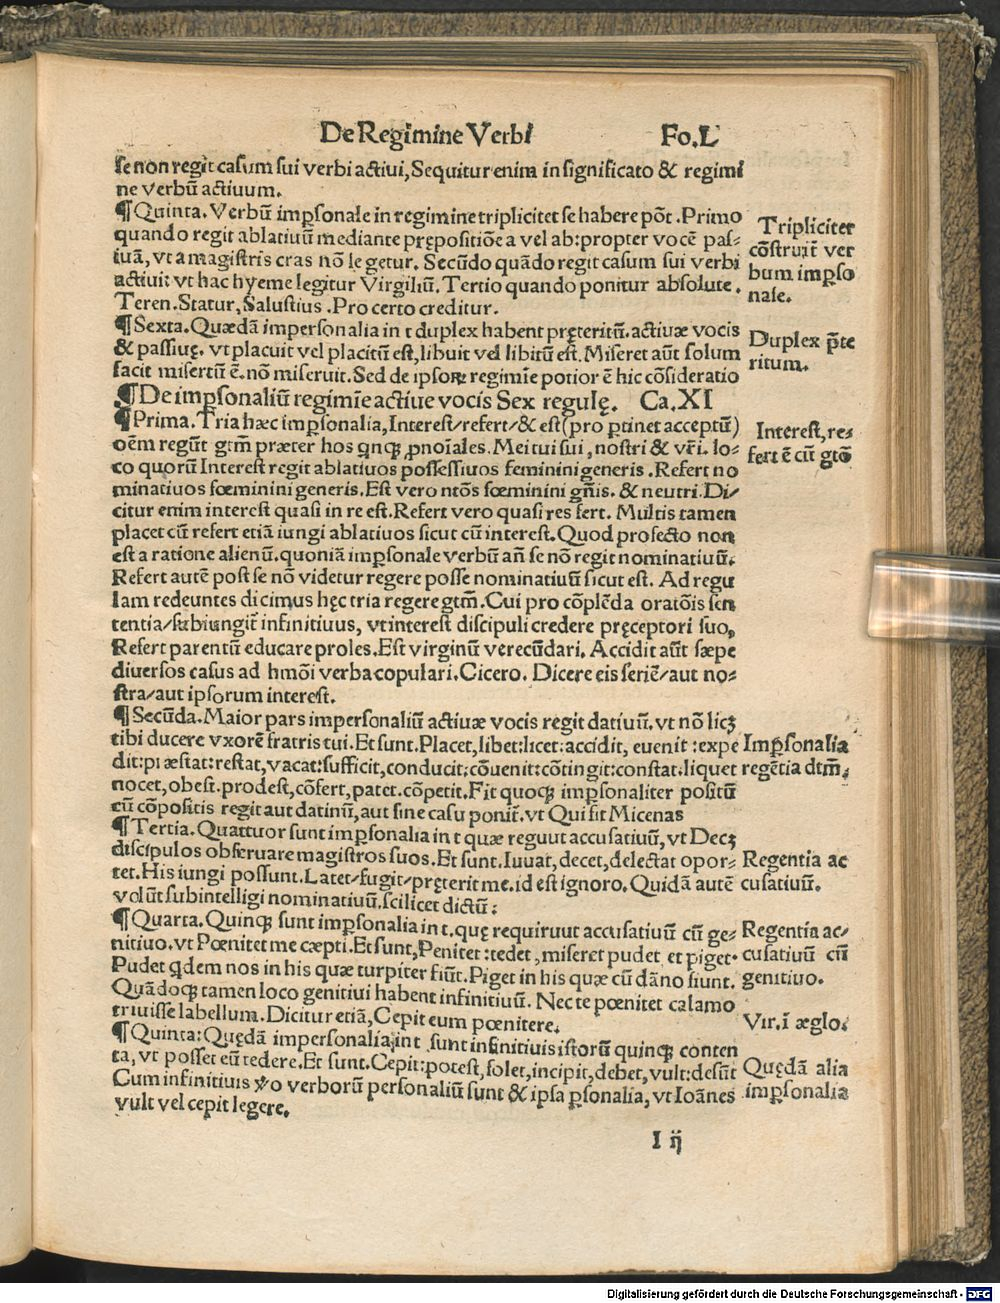 De Regimine Verbi Fo.L
se non regit casum sui verbi activi, Sequitur enim in significato & regimi
ne verbū activum.
¶ Quinta. Verbū imꝑsonale in regimine tripliciter se habere pōt. Primo
quando regit ablatiuū mediante prępositiōe a vel ab: propter vocē pas⸗
iuā, vt a magistris cras nō legetur. Secūdo quādo regit casum sui verbi
actiui: vt hac hyeme legitur Virgiliū. Tertio quando ponitur absolute.
Teren. Statur, Salustius. Pro certo creditur.
¶ Sexta. Quædā impersonalia in t duplex habent pręteritū. actiuæ vocis
& passiuę. vt placuit vel placitū est, libuit vel libitū est. Miseret aūt solum
facit misertū ē. nō miseruit. Sed de ipsoꝝ regimīe potior ē hic cōsideratio
¶ De imꝑsonaliū regimīe actiue vocis Sex regulę. Ca. XI
¶ Prima. Tria hæc imꝑsonalia, Interest/refert/& est (pro ꝑtinet acceptū)
oēm regūt gtm̄ præter hos qnqꝫ ꝓnoīales. Mei tui sui, nostri & vr̄i. lo⸗
co quorū Interest regit ablatiuos possessiuos feminini generis. Refert no
minatiuos fœminini generis. Est vero ntōs fœminini gn̄is. & neutri. Di/
citur enim interest quasi in re est. Refert vero quasi res fert. Multis tamen
placet cū refert etiā iungi ablatiuos sicut cū interest. Quod profecto non
est a ratione alienū. quoniā imꝑsonale verbū an̄ se nō regit nominatiuū.
Refert autē post se nō videtur regere posse nominatiuū sicut est. Ad regu
lam redeuntes dicimus hęc tria regere gtm̄. Cui pro cōplēda oratōis sen
tentia/subiungit̄ infinitiuus, vt interest discipuli credere pręceptori suo,
Refert parentū educare proles. Est virginū verecūdari. Accidit aūt sæpe
diuersos casus ad hmōi verba copulari. Cicero. Dicere eis seriē/aut no⸗
stra/aut ipsorum interest.
¶ Secūda. Maior pars impersonaliū actiuæ vocis regit datiuū. vt nō licꝫ
tibi ducere vxorē fratris tui. Et sunt. Placet, libet: licet: accidit, euenit: expe
dit: præstat: restat, vacat: sufficit, conducit: cōuenit: cōtingit: constat. liquet
nocet, obest. prodest, cōfert, patet. cōpetit. Fit quoqꝫ imꝑsonaliter positū
cū cōpositis regit aut datinū, aut sine casu ponit̄. vt Qui fit Micenas
¶ Tertia. Quattuor sunt imꝑsonalia in t quæ reguut accusatiuū, vt Decꝫ
discipulos obseruare magistros suos. Et sunt. Iuuat, decet, delectat opor⸗
tet. His iungi possunt. Latet/fugit/pręterit me. id est ignoro. Quidā autē
volūt subintelligi nominatiuū. scilicet dictū:
¶ Quarta. Quinqꝫ sunt imꝑsonalia in t. quę requiruut accusatiuū cū ge⸗
nitiuo. vt Pœnitet me cæpti. Et sunt, Penitet: tedet, miseret pudet et piget.
Pudet qdem nos in his quæ turpiter fiūt. Piget in his quæ cū dāno fiunt.
Quādoqꝫ tamen loco genitiui habent infinitiuū. Nec te pœnitet calamo
triuisse labellum. Dicitur etiā, Cepit eum pœnitere.
¶ Quinta: Quędā impersonalia in t sunt infinitiuis istorū quinqꝫ conten
ta, vt posset eū tedere. Et sunt. Cepit: potest, solet, incipit, debet, vult: desūt
Cum infinitiuis v̄o verborū personaliū sunt & ipsa ꝑsonalia, vt Ioānes
vult vel cepit legere.
I ij
Tripliciter
cōstruit̄ ver
bum imꝑso
nale.
Duplex p̄te
ritum.
Interest, re⸗
fert ē cū gtō
Imꝑsonalia
regētia dtm̄.
Regentia ac
cusatiuū.
Regentia ac/
cusatiuū cū
genitiuo.
Vir. ī æglo.
Quędā alia
imꝑsonalia
Digitalisierung gefördert durch die Deutsche Forschungsgemeinschaft - DFG